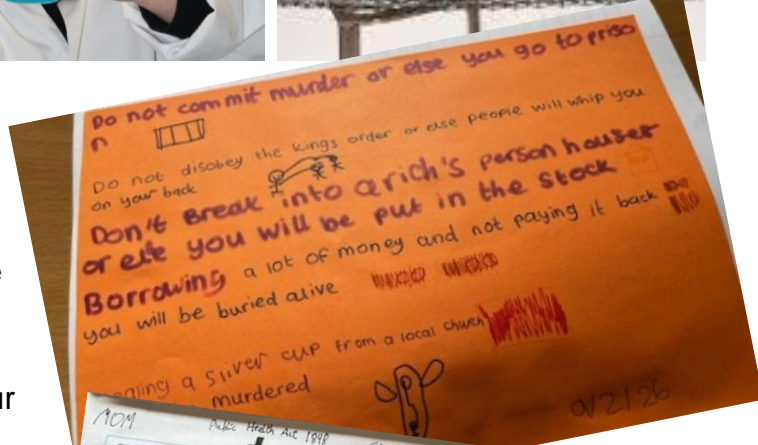 Do not commit murder or else you go to priso
n
Do not disobey the kings order or else people will whip you
on your back
Don't Break into a rich's person houses
or else you will be put in the stock
Borrowing a lot of money and not paying it back
you will be buried alive
a sliver cup from a local church
murdered
9/2/26
MOM
Public Health Act 1848
ur